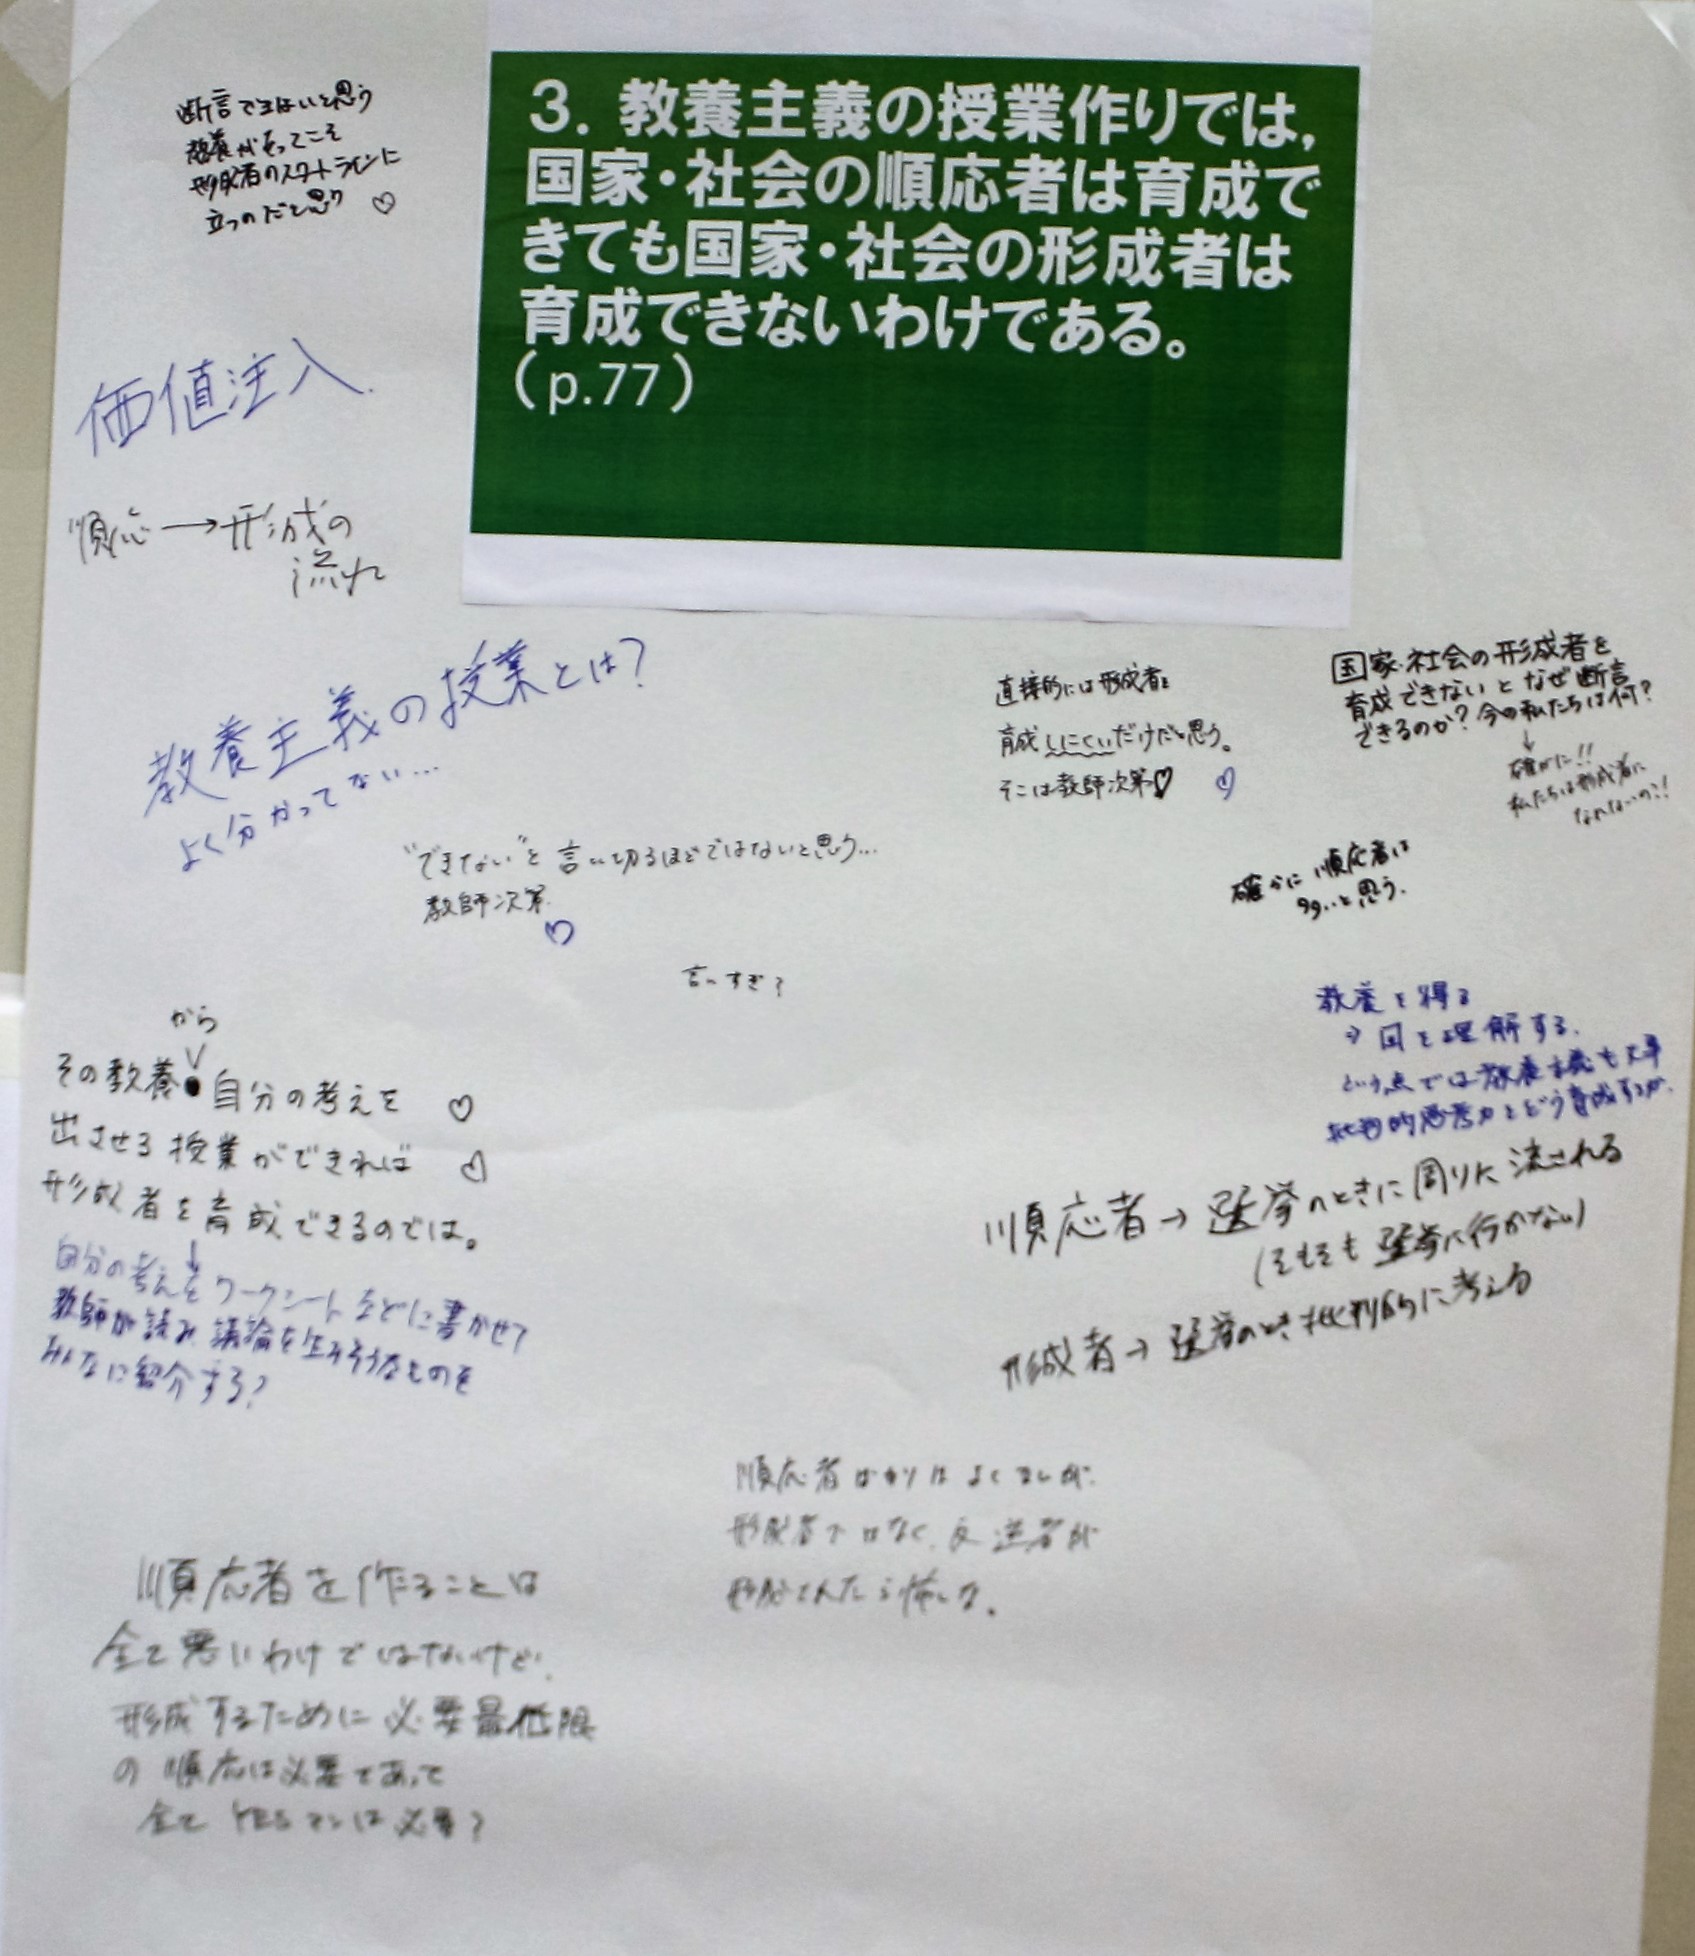 3. 教養主義の授業作りでは,
国家・社会の順応者は育成で
きても国家・社会の形成者は
育成できないわけである。
(p.77)
断言できないと思う
教養があってこそ
形成者のスタートラインに
立つのだと思う ♡
価値注入.
順応→形成の
流れ
教養主義の授業とは?
よく分かってない…
直接的には形成者を
育成しにくいだけだと思う。
そこは教師次第♡ ♡
国家・社会の形成者を
育成できないとなぜ断言
できるのか? 今の私たちは何?
↓
確かに!!
私たちは形成者に
なれないの?!
"できない"と言い切るほどではないと思う…
教師次第.
♡
確かに順応者は
多いと思う.
言いすぎ?
から
その教養 自分の考えを ♡
出させる授業ができれば ♡
形成者を育成できるのでは。
↓
自分の考えをワークシートなどに書かせて
教師が読み、議論を生みそうなものを
みんなに紹介する?
教養を得る
→国を理解する.
という点では教養主義も大事
批判的思考力をどう育成するか.
順応者→選挙のときに周りに流される
(そもそも選挙に行かない)
形成者→選挙のとき批判的に考える
順応者ばかりはよくないが.
形成者ではなく、反逆者が
形成されたら怖いな。
順応者を作ることは
全て悪いわけではないけど、
形成するために必要最低限
の順応は必要であって
全てYESマンは必要?